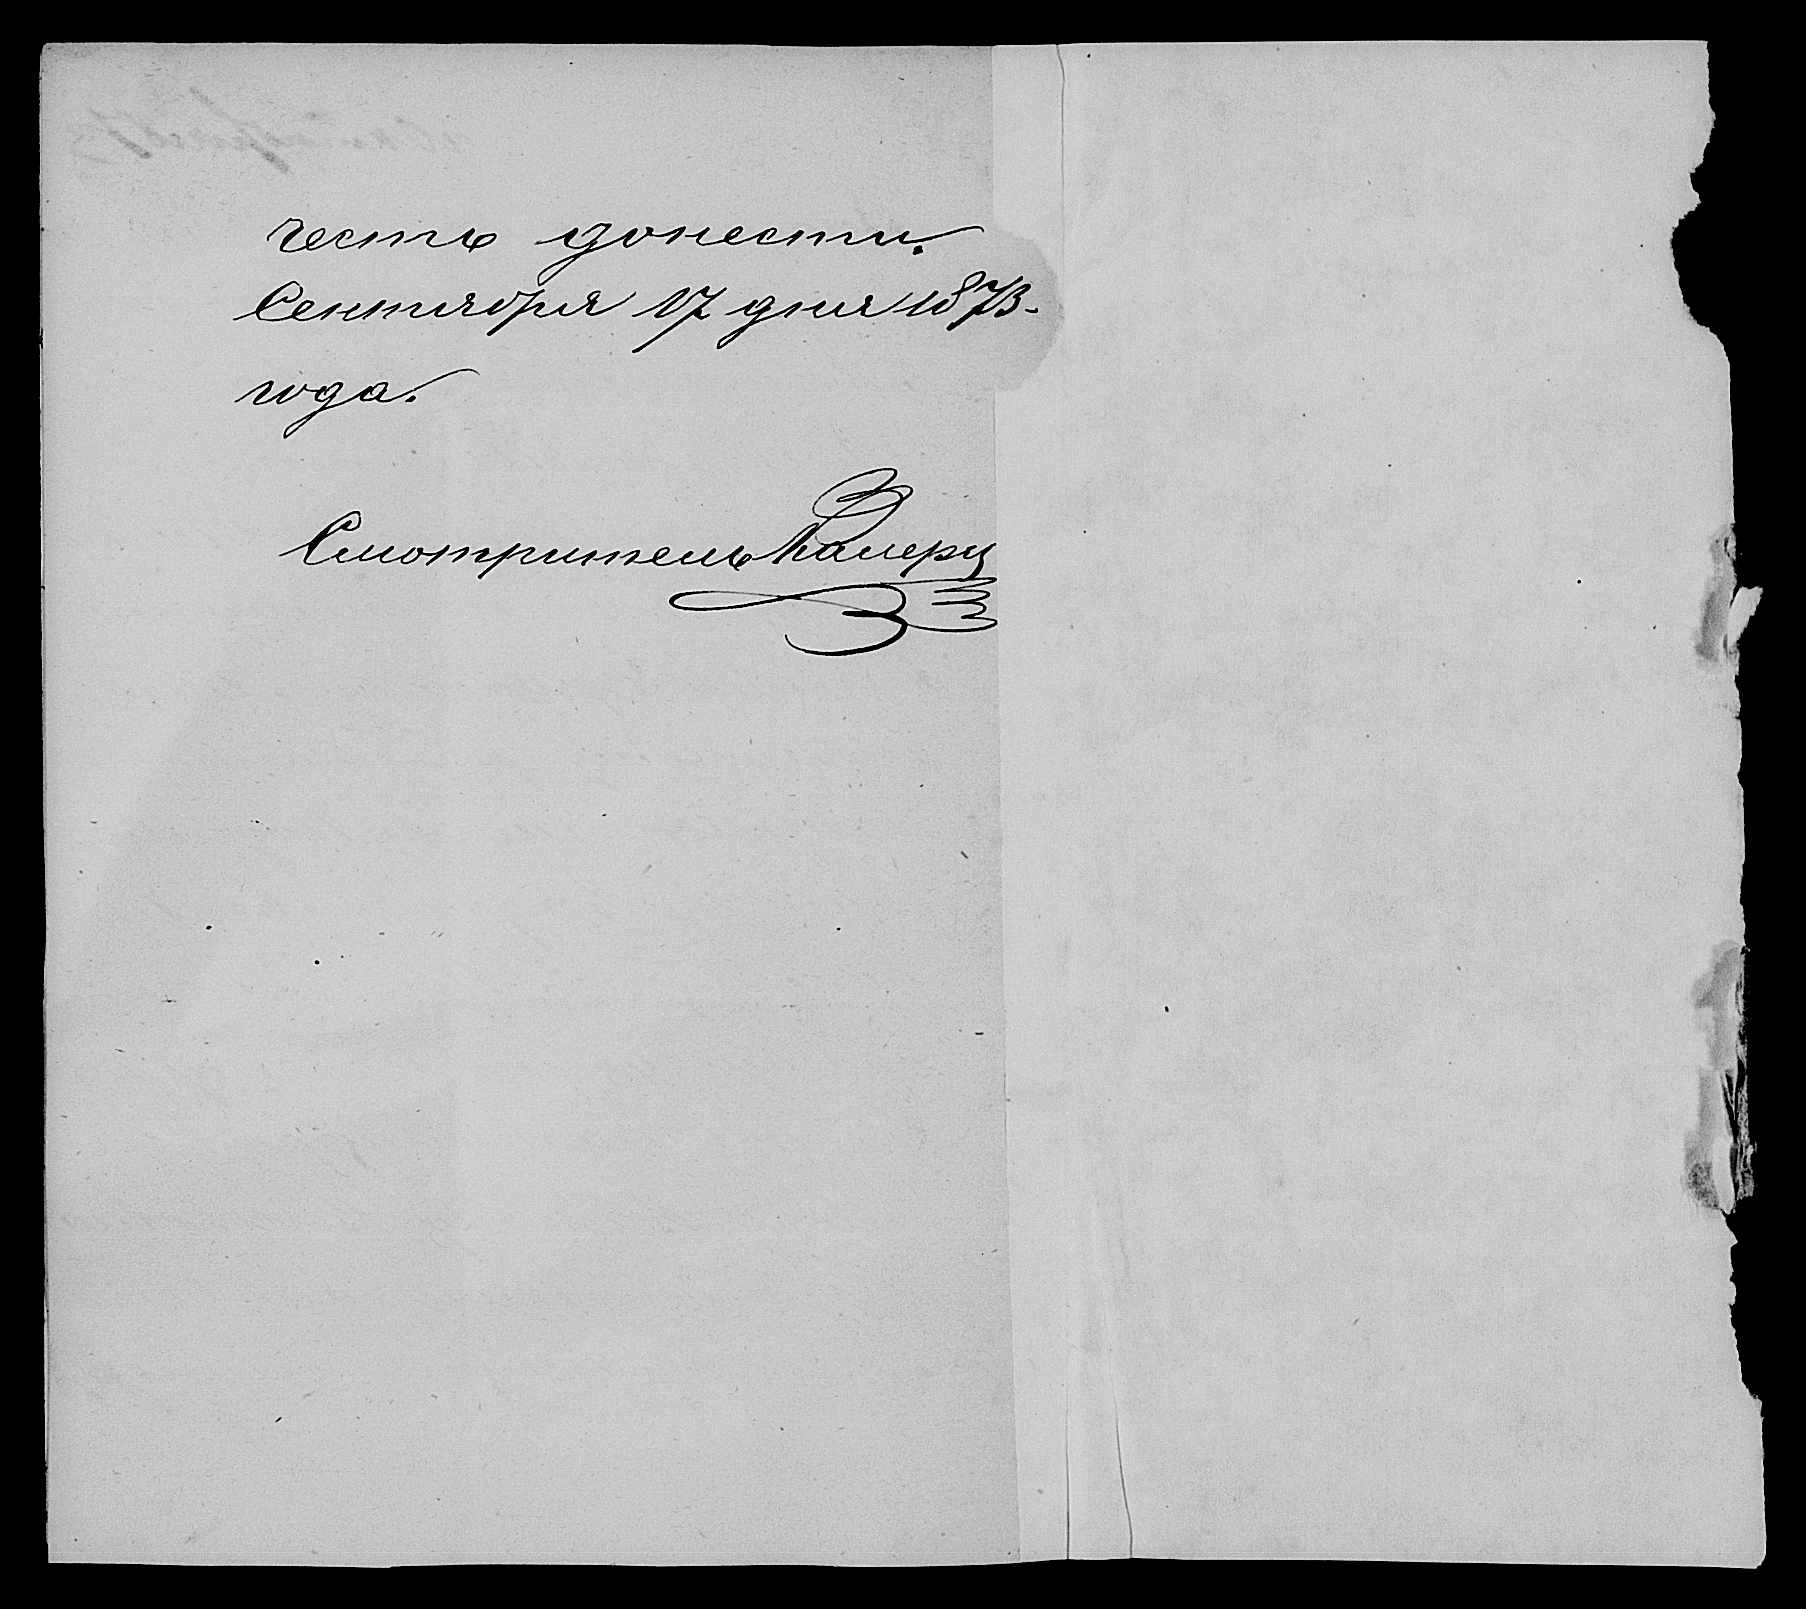 честь донести.
Сентября 17 дня 1873-
года.
Смотритель